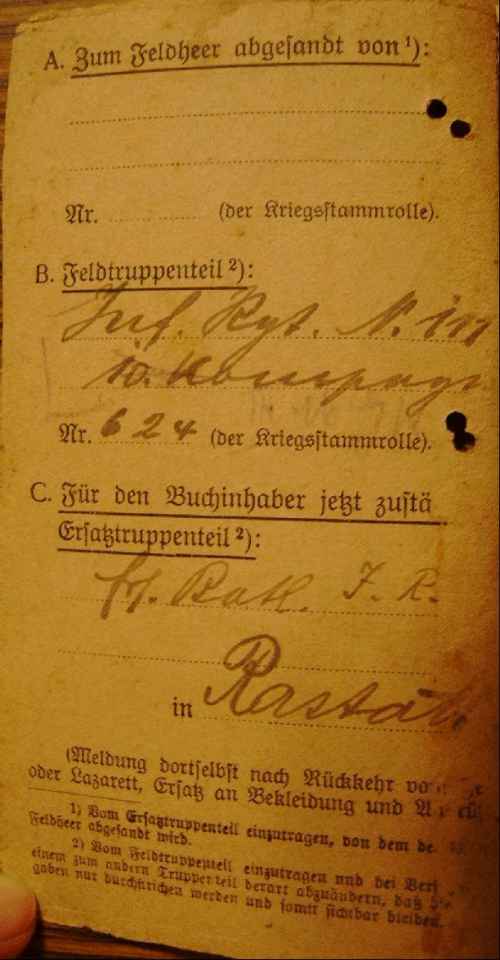 A. Zum Feldheer abgesandt von ¹):
Nr. (der Kriegsstammrolle).
B. Feldtruppenteil ²):
Inf. Rgt. N. 111
10. Kompagn
Nr. 624 (der Kriegsstammrolle).
C. Für den Buchinhaber jetzt zustä
Ersatztruppenteil ²):
Batl. I. R.
in Rastat
(Meldung dortselbst nach Rückkehr
oder Lazarett, Ersatz an Bekleidung und
1) Vom Ersatztruppenteil einzutragen, von dem de
Feldheer abgesandt wird.
2) Vom Feldtruppenteil einzutragen und bei Vers
einem zum andern Truppenteil derart abzuändern, daß
gaben nur durchstrichen werden und somit sichtbar bleiben.